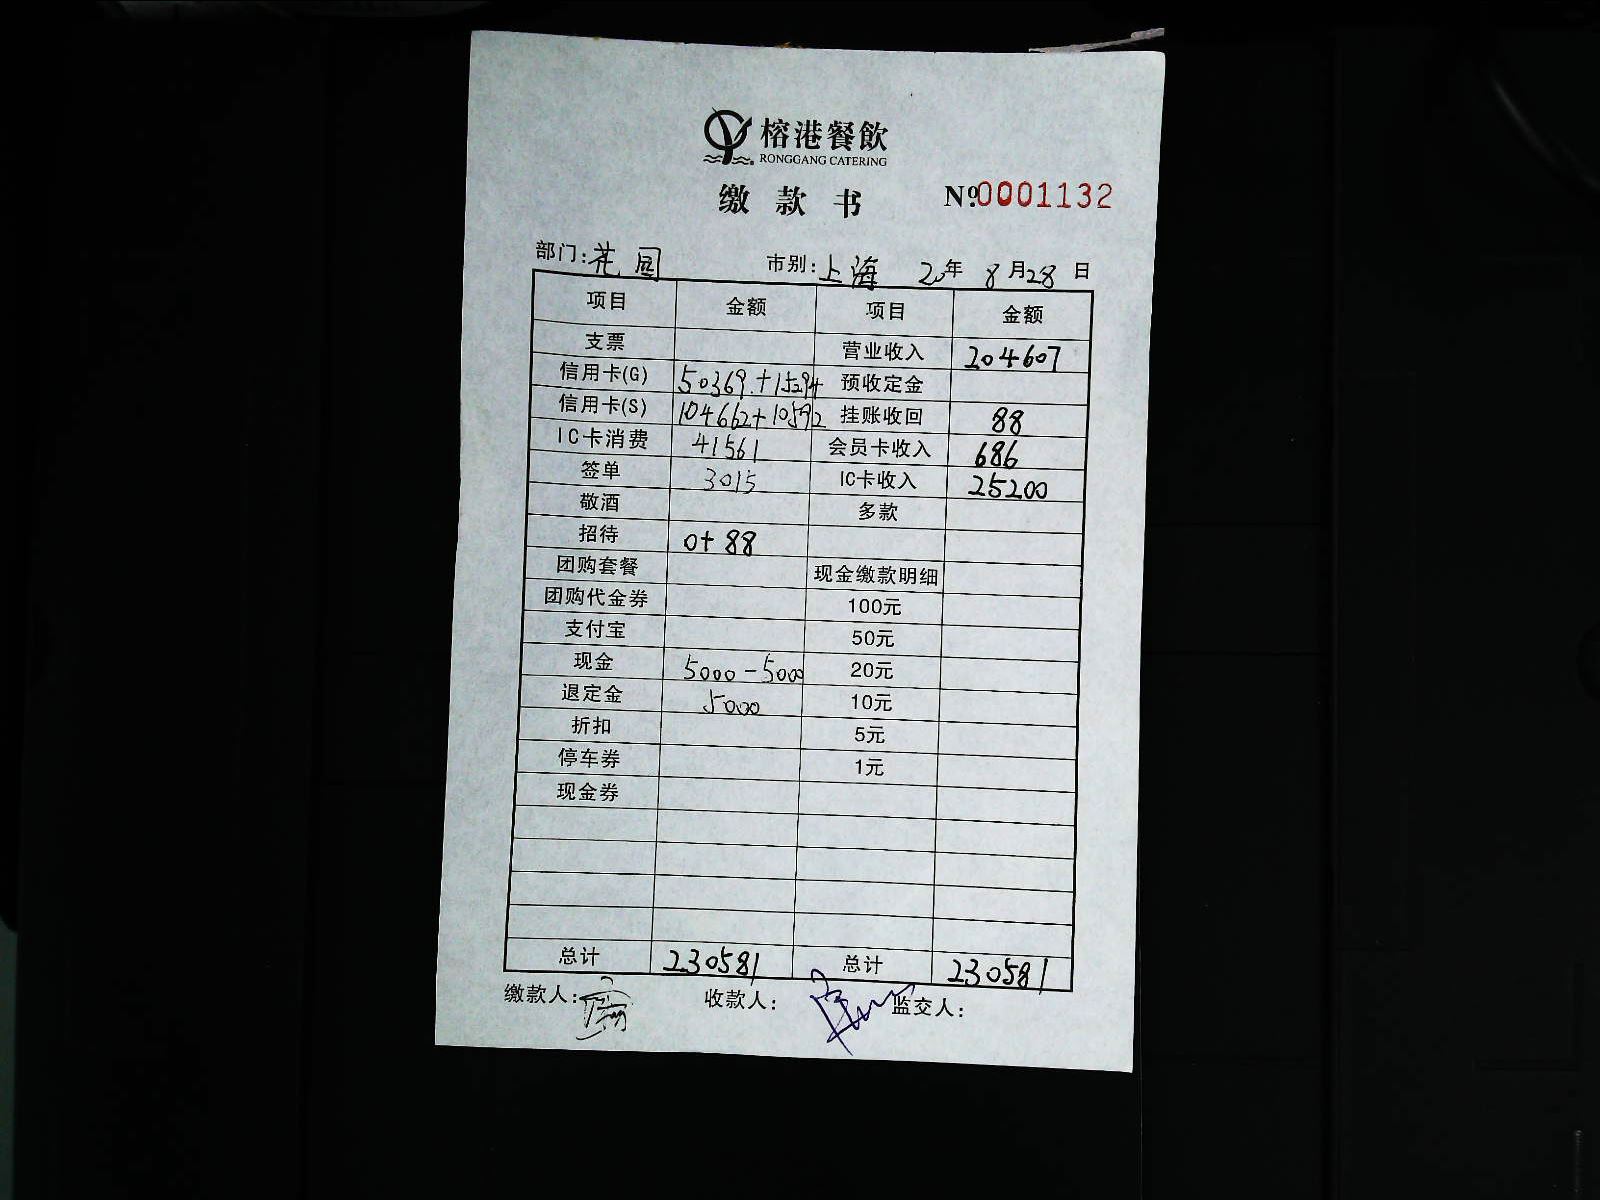 榕港餐飲
RONGGANG CATERING
缴款书 Nº:0001132
部门:花园 市别:上海 20年8月28日
项目 金额 项目 金额
支票 营业收入 204607
信用卡(G) 50369.+15294 预收定金
信用卡(S) 104662+10592 挂账收回 88
IC卡消费 41561 会员卡收入 686
签单 3015 IC卡收入 25200
敬酒 多款
招待 0+88
团购套餐 现金缴款明细
团购代金券 100元
支付宝 50元
现金 5000-5000 20元
退定金 5000 10元
折扣 5元
停车券 1元
现金券
总计 230581 总计 230581
缴款人: 收款人: 监交人: